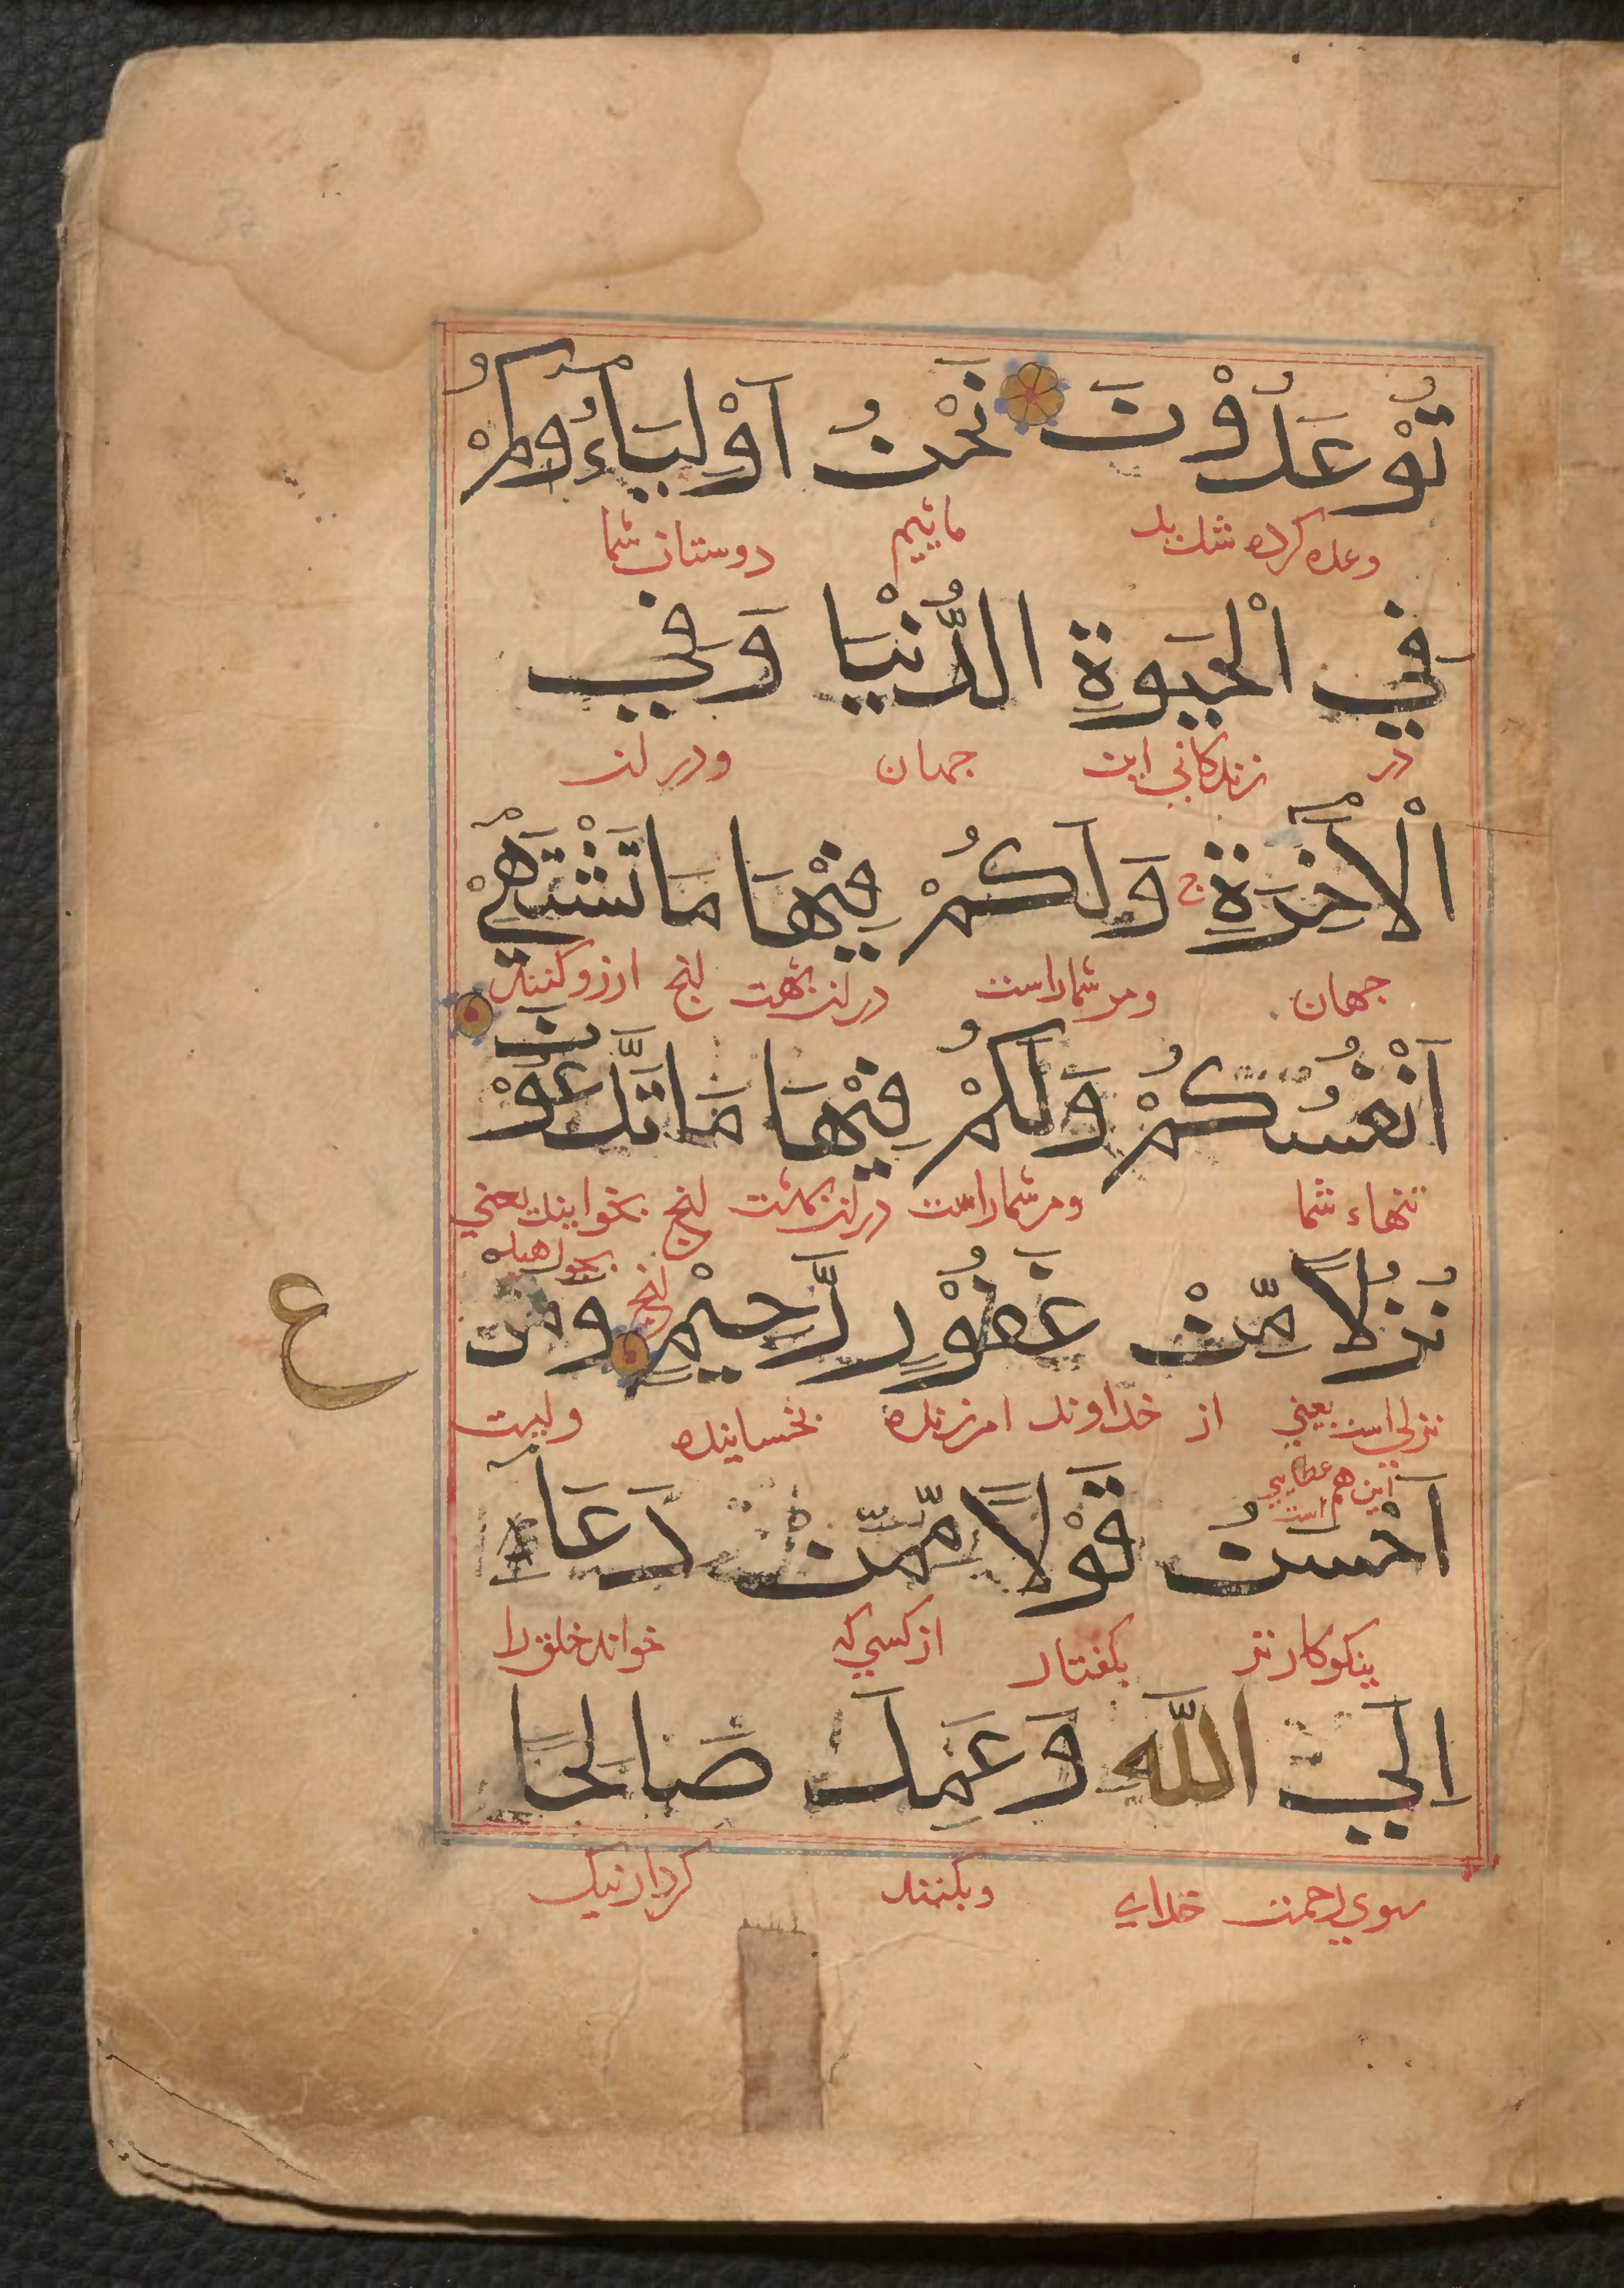 تُوْعَدُوْنَ نَحْنُ اَوْلِيَآءُوكُمْ
وعده كرده شديد مائيم دوستان شما
فِي الْحَيٰوةِ الدُّنْيَا وَفِي
در زندكاني اين جهان ودر ان
الْاٰخِرَةِ ج وَلَكُمْ فِيْهَا مَا تَشْتَهِيْٓ
جهان ومر شما راست در ان بهشت انچ ارزو كنند
اَنْفُسُكُمْ وَلَكُمْ فِيْهَا مَا تَدَّعُوْنَ
تنهاء شما ومر شما راست در ان بهشت انچ بخوايند يعني
نُزُلًا مِّنْ غَفُوْرٍ رَّحِيْمٍ وَمَنْ
ع
نزلي است يعني از خداوند امرزنده بخساينده وكيست
اين هم عطايي است
اَحْسَنُ قَوْلًا مِّمَّنْ دَعَآ
نيكوكارتر بكفتار از كسي كه خواند خلق را
اِلَي اللّٰهِ وَعَمِلَ صَالِحًا
سوي رحمت خداي وبكنند كردار نيك